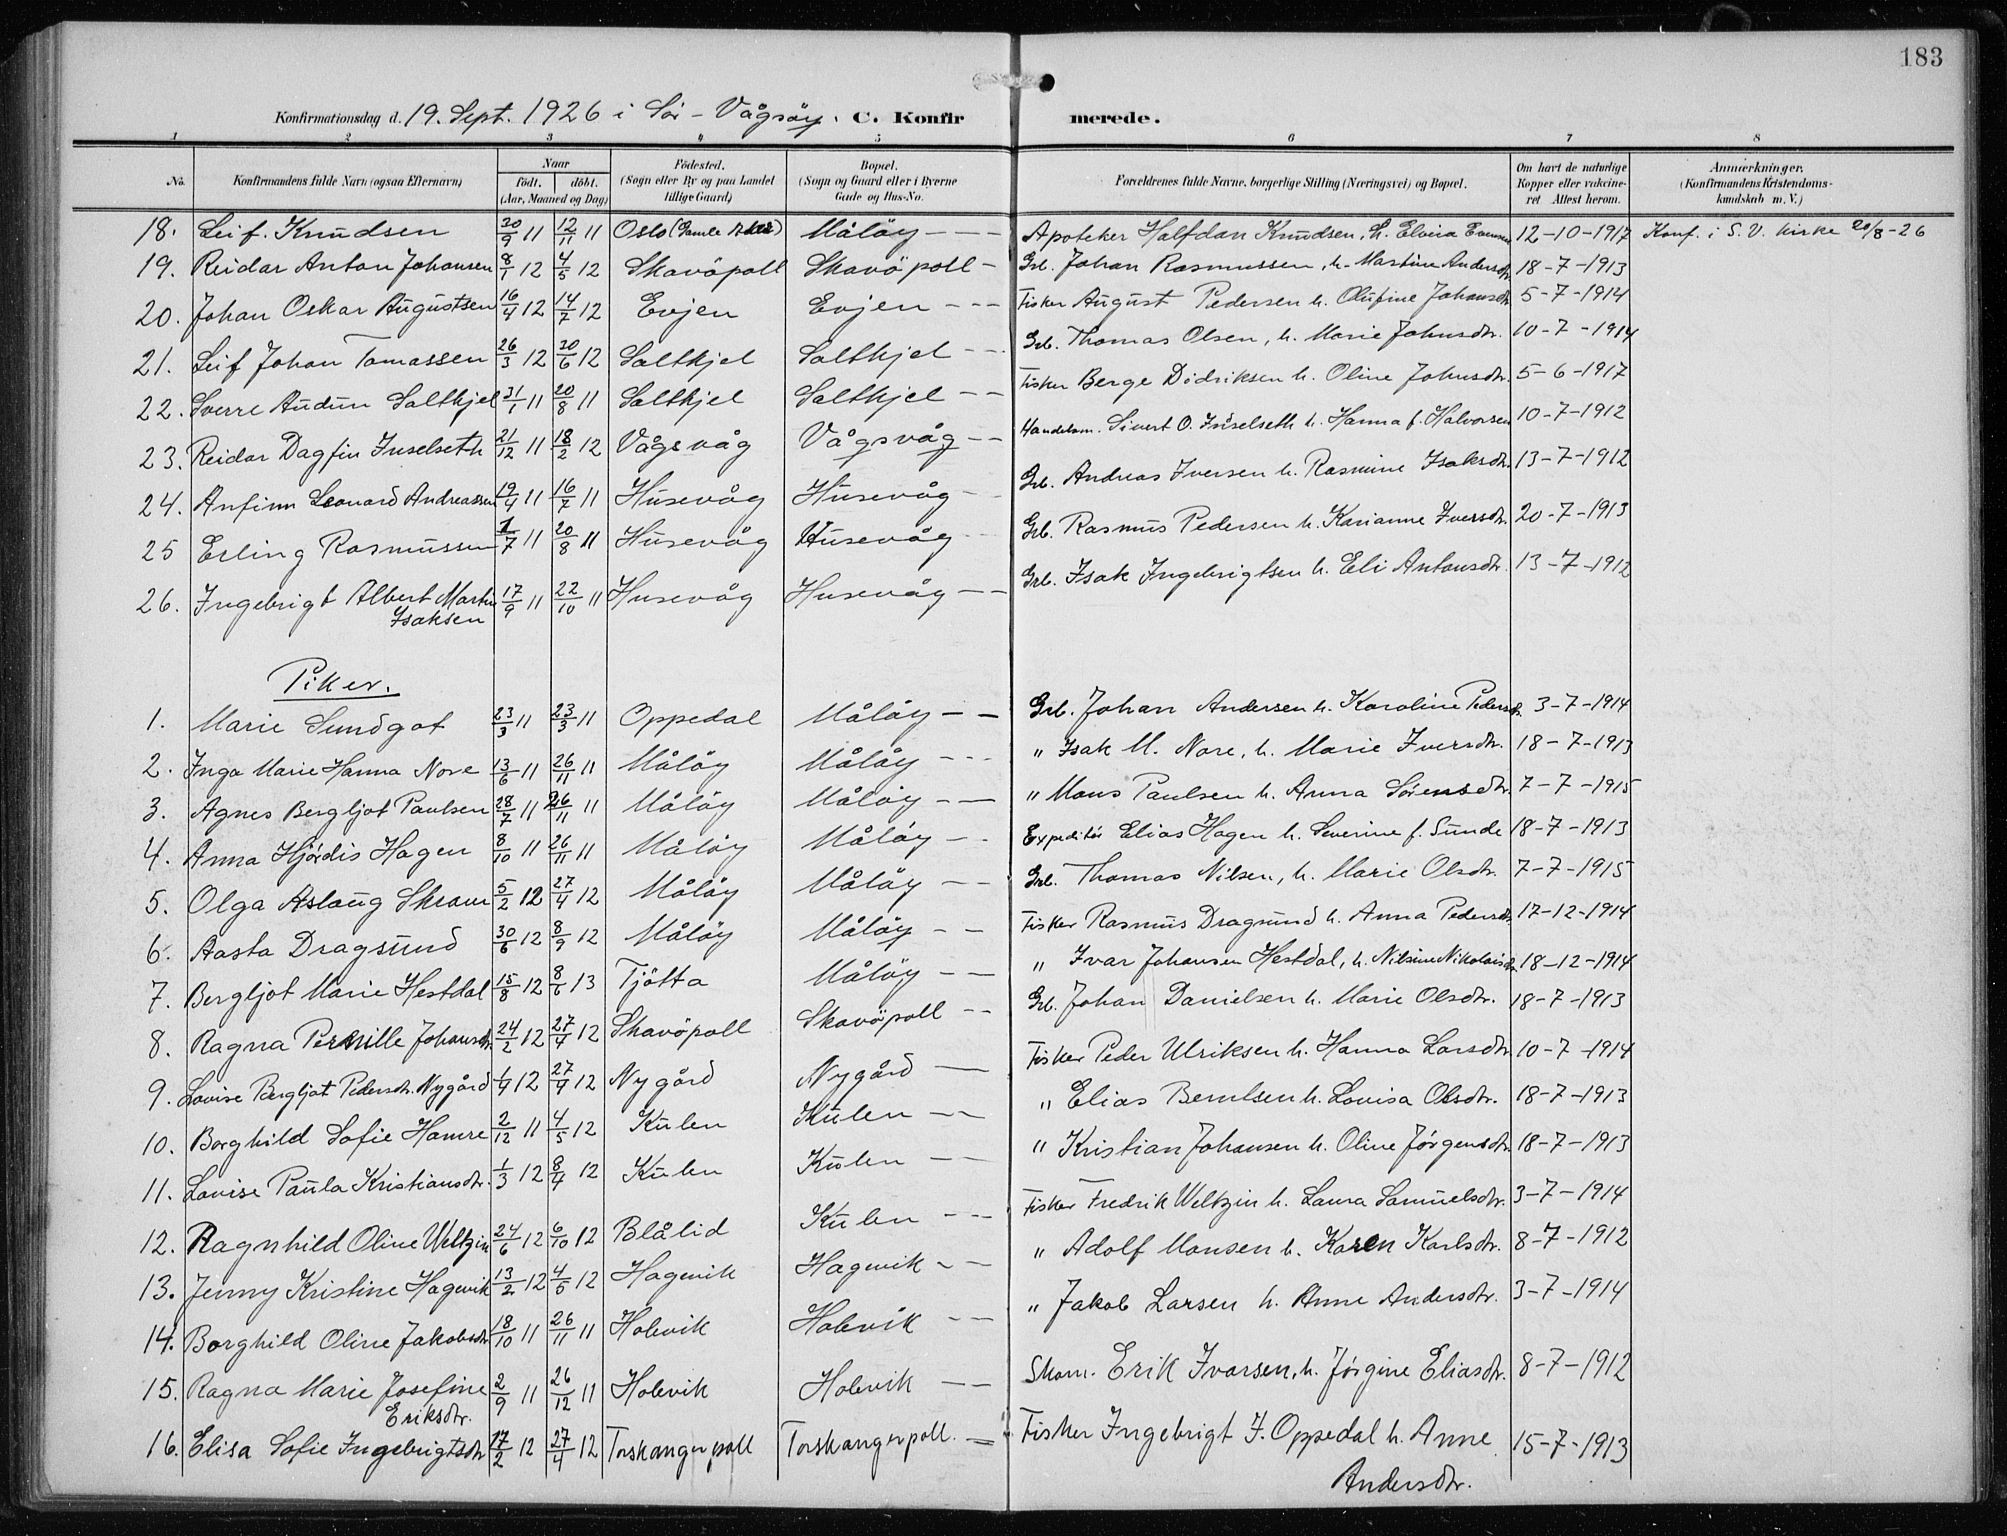 183
Konfirmationsdag d. 19. Sept. 1926 i Sör-Vågsöy. C. Konfirmerede.
1 2 3 4 5 6 7 8
No. Konfirmandens fulde Navn (ogsaa Efternavn) Naar født. døbt. (Aar, Maaned og Dag) Fødested. (Sogn eller By og paa Landet tillige Gaard) Bopæl. (Sogn og Gaard eller i Byerne Gade og Hus-No. Forældrenes fulde Navne, borgerlige Stilling (Næringsvei) og Bopæl. Om havt de naturlige Kopper eller vaccineret Attest herom. Anmærkninger. (Konfirmandens Kristendomskundskab m. V.)
18. Leif Knudsen 30/9 11 12/11 11 Oslo (Gamle Aker) Målöy - - - Apoteker Halfdan Knudsen, h. Elvira 12-10-1917 Konf. i S. V. kirke 20/8-26
19. Reidar Anton Johansen 8/1 12 4/5 12 Skavöpoll Skavöpoll - Grb. Johan Rasmussen, h. Martine Andersdtr. 18-7-1913
20. Johan Oskar Augustsen 16/4 12 14/7 12 Evjen Evjen - - - Fisker August Pedersen h. Olufine Johansdtr. 5-7-1914
21. Leif Johan Tomassen 26/3 12 30/6 12 Saltkjel Saltkjel - - - Grb. Thomas Olsen, h. Marie Johnsdtr. 10-7-1914
22. Sverre Audun Saltkjel 31/1 11 20/8 11 Saltkjel Saltkjel - - Fisker Berge Didriksen h. Oline Johnsdtr. 5-6-1917
23. Reidar Dagfin Inselseth 21/12 11 18/2 12 Vågsvåg Vågsvåg - - Handelsm. Sivert O. Inselseth h. Hanna f. Halvorsen 10-7-1912
24. Anfinn Leonard Andreassen 19/4 11 16/7 11 Husevåg Husevåg - Grb. Andreas Iversen h. Rasmine Isaksdtr. 13-7-1912
25 Erling Rasmussen 1/7 11 20/8 11 Husevåg Husevåg - Grb. Rasmus Pedersen h. Karianne Iversdtr. 20-7-1913
26. Ingebrigt Albert Martin Isaksen 17/9 11 22/10 11 Husevåg Husevåg - - Grb. Isak Ingebrigtsen h. Eli Antonsdtr. 13-7-1912
Piker.
1. Marie Sundgot 23/3 11 23/3 11 Oppedal Målöy - - Grb. Johan Andersen h. Karoline Pedersdtr. 3-7-1914
2. Inga Marie Hanna Nore 13/6 11 26/11 11 Målöy Målöy - - - " Isak M. Nore, h. Marie Iversdtr. 18-7-1913
3. Agnes Bergljot Paulsen 28/7 11 26/11 11 Målöy Målöy - - " Mons Paulsen h. Anna Sörensdtr. 7-7-1915
4. Anna Hjördis Hagen 8/10 11 26/11 11 Målöy Målöy - - Expeditör Elias Hagen h. Severine f. Sunde 18-7-1913
5. Olga Aslaug Skram 5/2 12 27/4 12 Målöy Målöy - - Grb. Thomas Nilsen, h. Marie Olsdtr. 7-7-1915
6. Aasta Dragsund 30/6 12 8/9 12 Målöy Målöy - - Fisker Rasmus Dragsund h. Anna Pedersdtr. 17-12-1914
7. Bergljot Marie Hestdal 15/8 12 8/6 13 Tjötta Målöy - - " Ivar Johansen Hestdal, h. Nilsine Nikolaisdtr. 18-12-1914
8. Ragna Pernille Johansdtr. 24/2 12 27/4 12 Skavöpoll Skavöpoll - - Grb. Johan Danielsen h. Marie Olsdtr. 18-7-1913
9. Lovise Bergljot Pedersdtr. Nygård 1/4 12 27/4 12 Nygård Nygård - Fisker Peder Ulriksen h. Hanna Larsdtr. 10-7-1914
10. Borghild Sofie Hamre 2/12 11 4/5 12 Kulen Kulen - - " Elias Berntsen h. Lovisa Olsdtr. 18-7-1913
11. Lovise Paula Kristiansdtr. 1/3 12 8/4 12 Kulen Kulen - - " Kristian Johansen h. Oline Jörgensdtr. 18-7-1913
12. Ragnhild Oline Weltzin 24/6 12 6/10 12 Blålid Kulen - - Fisker Fredrik Weltzin h. Laura Samuelsdtr. 3-7-1914
13. Jenny Kristine Hagevik 13/2 12 4/5 12 Hagevik Hagevik - - " Adolf Monsen h. Karen Karlsdtr. 8-7-1912
14. Borghild Oline Jakobsdtr 18/10 11 26/11 11 Holevik Holevik - - " Jakob Larsen h. Anne Andersdtr. 3-7-1914
15. Ragna Marie Josefine Eriksdtr. 2/9 11 26/12 11 Holevik Holevik - - Skom. Erik Ivarsen, h. Jörgine Eliasdtr. 8-7-1912
16. Elisa Sofie Ingebrigtsdtr 17/2 12 27/4 12 Torskangerpoll Torskangerpoll. - Fisker Ingebrigt J. Oppedal h. Anne Andersdtr. 15-7-1913